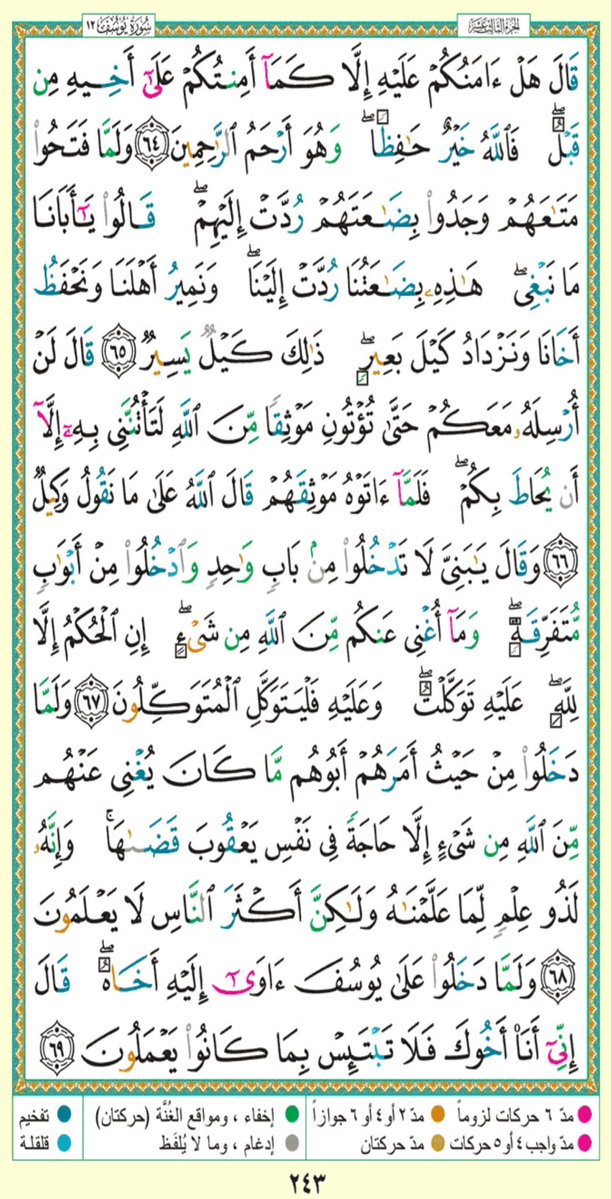 الجزء الثالث عشر
سورة يوسف ١٢
قَالَ هَلْ ءَامَنُكُمْ عَلَيْهِ إِلَّا كَمَآ أَمِنتُكُمْ عَلَىٰٓ أَخِيهِ مِن
قَبْلُ ۖ فَٱللَّهُ خَيْرٌ حَـٰفِظًا ۖ وَهُوَ أَرْحَمُ ٱلرَّٰحِمِينَ ٦٤ وَلَمَّا فَتَحُوا۟
مَتَـٰعَهُمْ وَجَدُوا۟ بِضَـٰعَتَهُمْ رُدَّتْ إِلَيْهِمْ ۖ قَالُوا۟ يَـٰٓأَبَانَا
مَا نَبْغِى ۖ هَـٰذِهِۦ بِضَـٰعَتُنَا رُدَّتْ إِلَيْنَا ۖ وَنَمِيرُ أَهْلَنَا وَنَحْفَظُ
أَخَانَا وَنَزْدَادُ كَيْلَ بَعِيرٍ ۖ ذَٰلِكَ كَيْلٌ يَسِيرٌ ٦٥ قَالَ لَنْ
أُرْسِلَهُۥ مَعَكُمْ حَتَّىٰ تُؤْتُونِ مَوْثِقًا مِّنَ ٱللَّهِ لَتَأْتُنَّنِى بِهِۦٓ إِلَّآ
أَن يُحَاطَ بِكُمْ ۖ فَلَمَّآ ءَاتَوْهُ مَوْثِقَهُمْ قَالَ ٱللَّهُ عَلَىٰ مَا نَقُولُ وَكِيلٌ
٦٦ وَقَالَ يَـٰبَنِىَّ لَا تَدْخُلُوا۟ مِنۢ بَابٍ وَٰحِدٍ وَٱدْخُلُوا۟ مِنْ أَبْوَٰبٍ
مُّتَفَرِّقَةٍ ۖ وَمَآ أُغْنِى عَنكُم مِّنَ ٱللَّهِ مِن شَىْءٍ ۖ إِنِ ٱلْحُكْمُ إِلَّا
لِلَّهِ ۖ عَلَيْهِ تَوَكَّلْتُ ۖ وَعَلَيْهِ فَلْيَتَوَكَّلِ ٱلْمُتَوَكِّلُونَ ٦٧ وَلَمَّا
دَخَلُوا۟ مِنْ حَيْثُ أَمَرَهُمْ أَبُوهُم مَّا كَانَ يُغْنِى عَنْهُم
مِّنَ ٱللَّهِ مِن شَىْءٍ إِلَّا حَاجَةً فِى نَفْسِ يَعْقُوبَ قَضَىٰهَا ۚ وَإِنَّهُۥ
لَذُو عِلْمٍ لِّمَا عَلَّمْنَـٰهُ وَلَـٰكِنَّ أَكْثَرَ ٱلنَّاسِ لَا يَعْلَمُونَ
٦٨ وَلَمَّا دَخَلُوا۟ عَلَىٰ يُوسُفَ ءَاوَىٰٓ إِلَيْهِ أَخَاهُ ۖ قَالَ
إِنِّىٓ أَنَا۠ أَخُوكَ فَلَا تَبْتَئِسْ بِمَا كَانُوا۟ يَعْمَلُونَ ٦٩
مدّ ٦ حركات لزوماً مدّ ٢ أو ٤ أو ٦ جوازاً إخفاء ، ومواقع الغُنَّة (حركتان) تفخيم
مدّ واجب ٤ أو ٥ حركات مدّ حركتان إدغام ، وما لا يُلفَظ قلقلة
٢٤٣